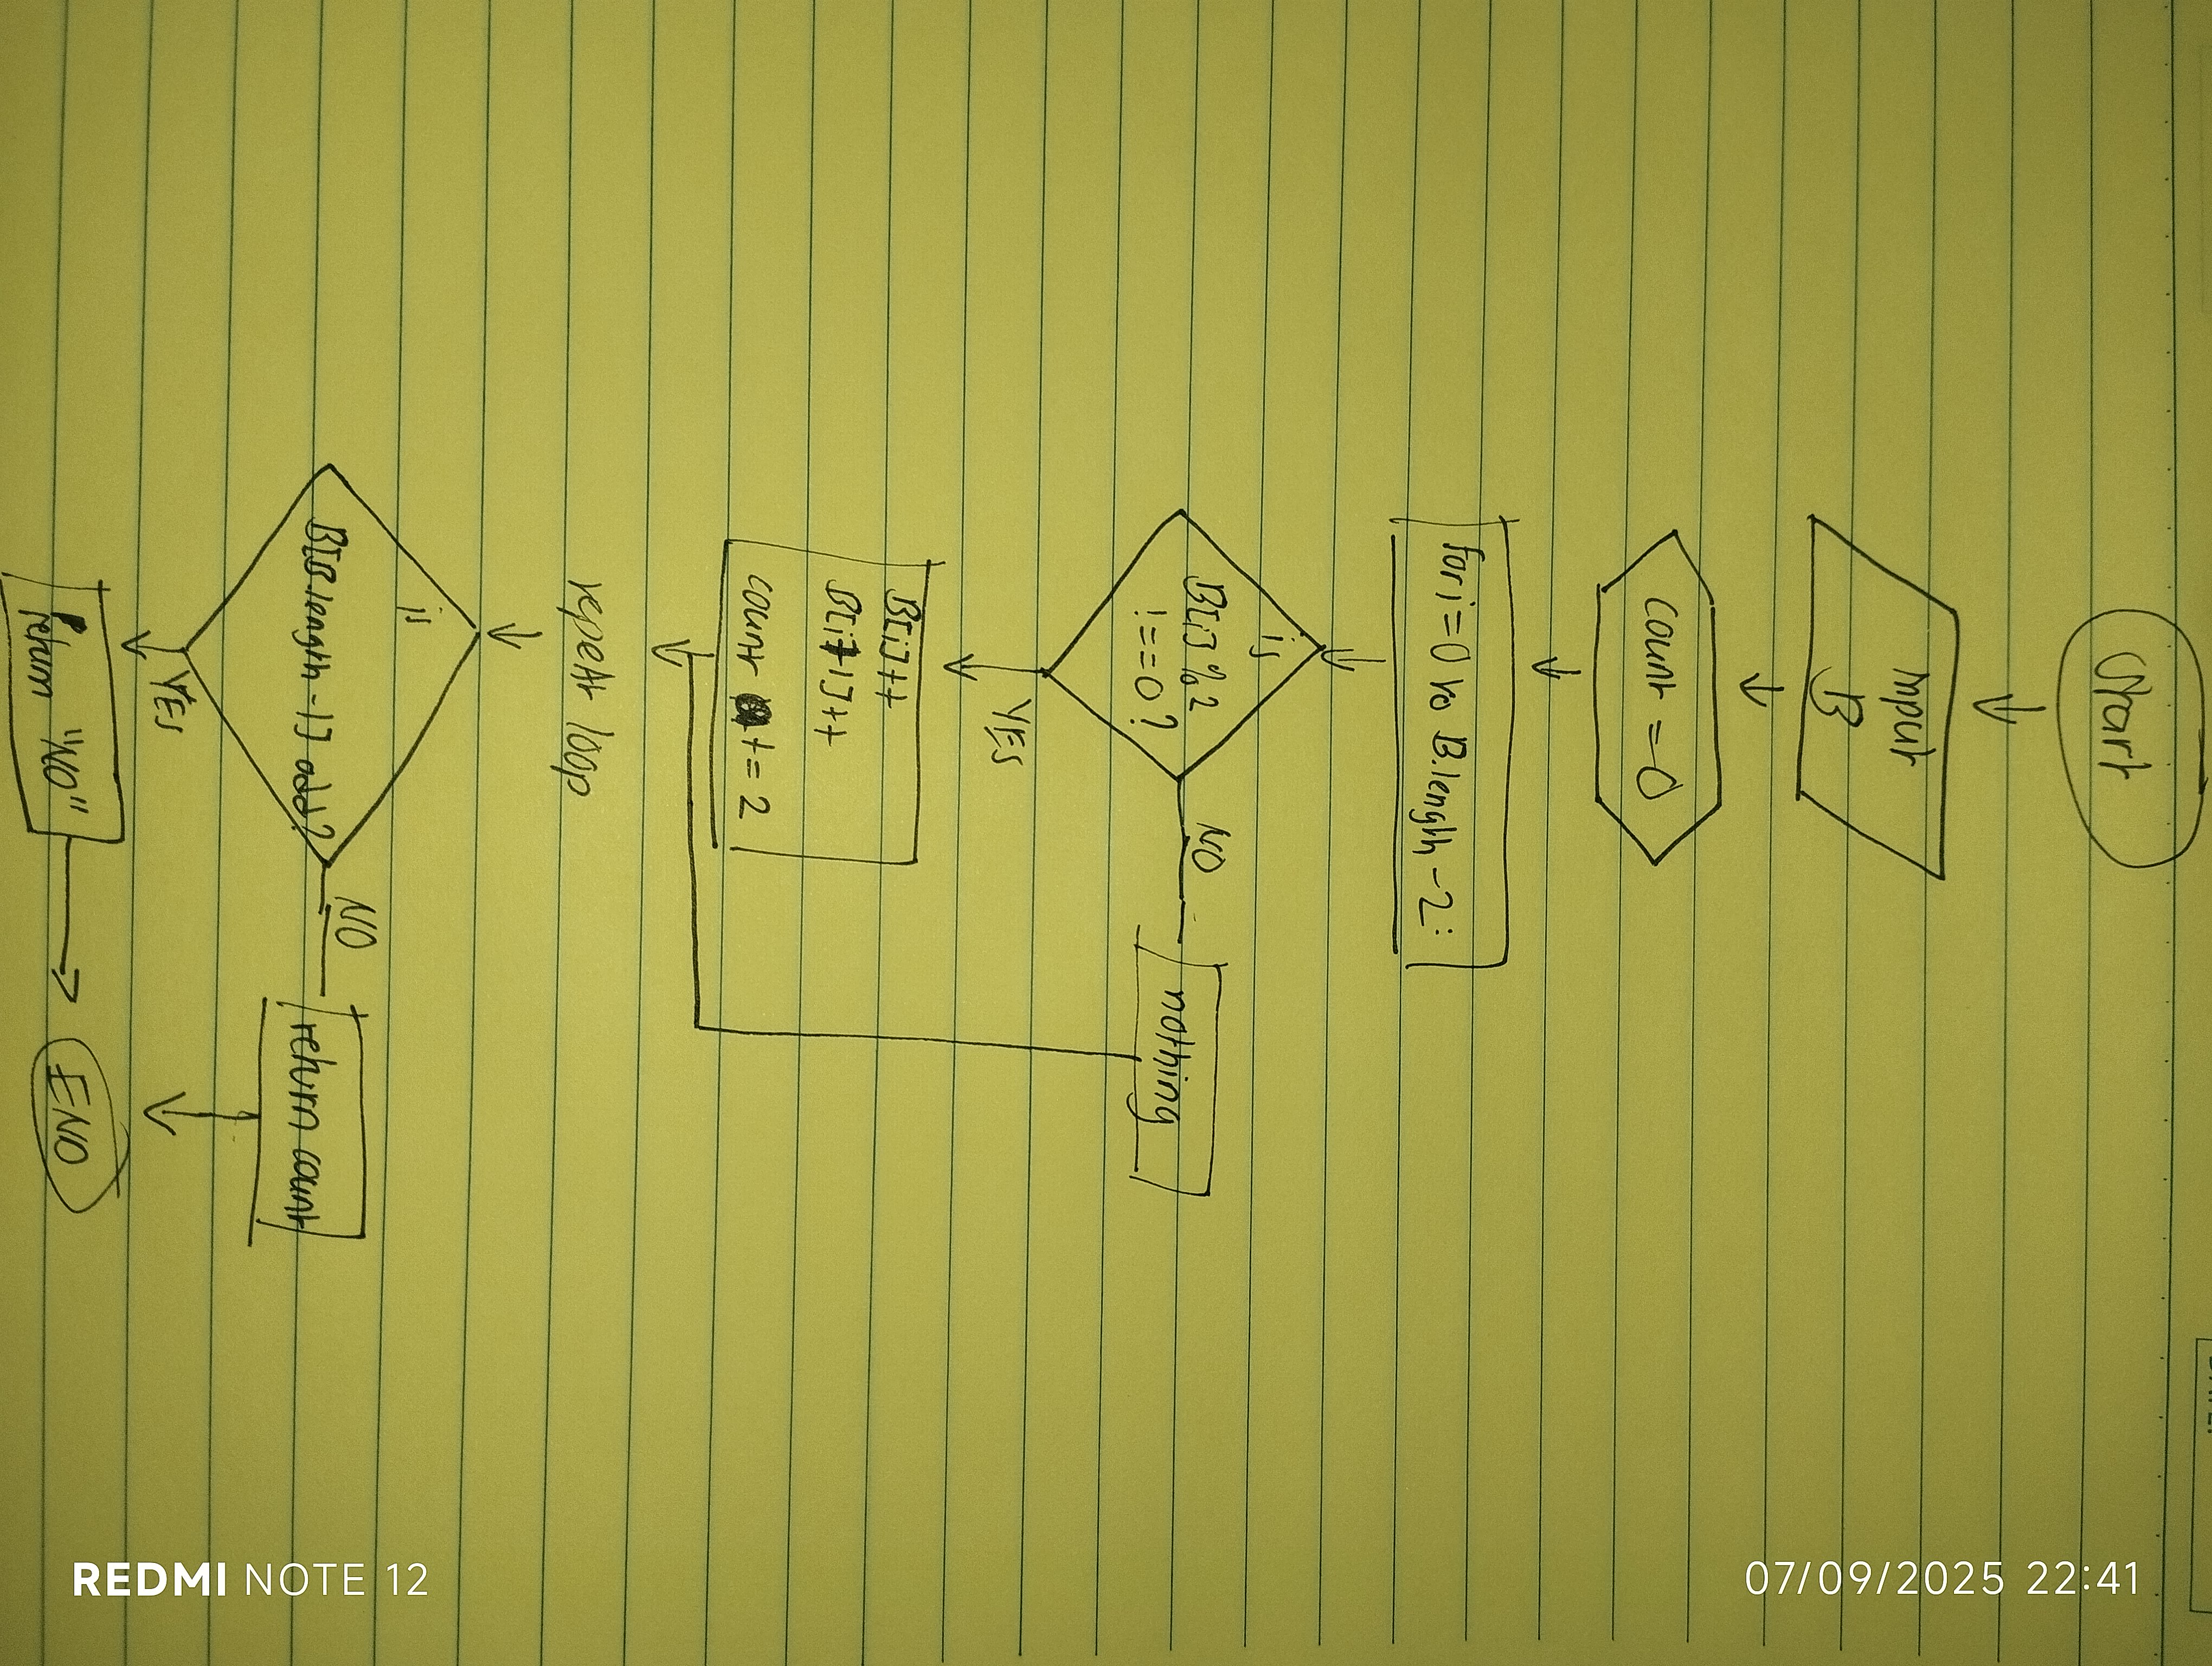 Start
Input
B
count = 0
for i = 0 to B.length - 2 :
is
B[i] % 2
!== 0 ?
NO
nothing
YES
B[i]++
B[i+1]++
count += 2
repeat loop
is
B[B.length -1] odd?
NO
return count
YES
return "NO"
END
REDMI NOTE 12
07/09/2025 22:41